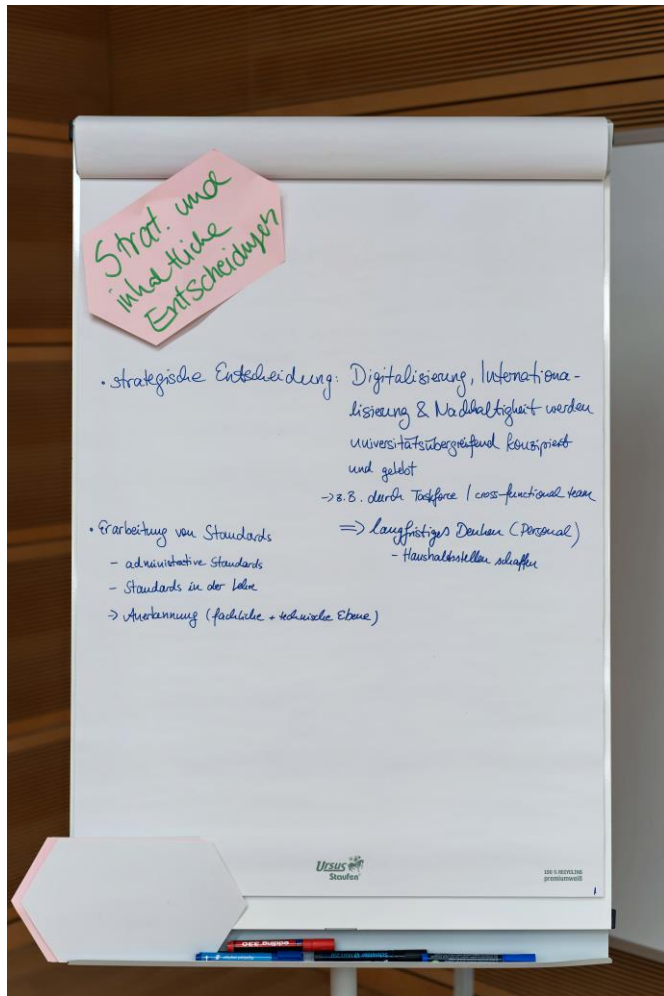 Strat. und
inhaltliche
Entscheidungen
• strategische Entscheidung: Digitalisierung, Internationa-
lisierung & Nachhaltigkeit werden
universitätsübergreifend konzipiert
und gelebt
-> z.B. durch Taskforce / cross-functional team
=> langfristiges Denken (Personal)
- Haushaltsstellen schaffen
• Erarbeitung von Standards
- administrative Standards
- Standards in der Lehre
-> Anerkennung (fachliche + technische Ebene)
Ursus
Staufen
100 % RECYCLING
premiumweiß
1
edding 330